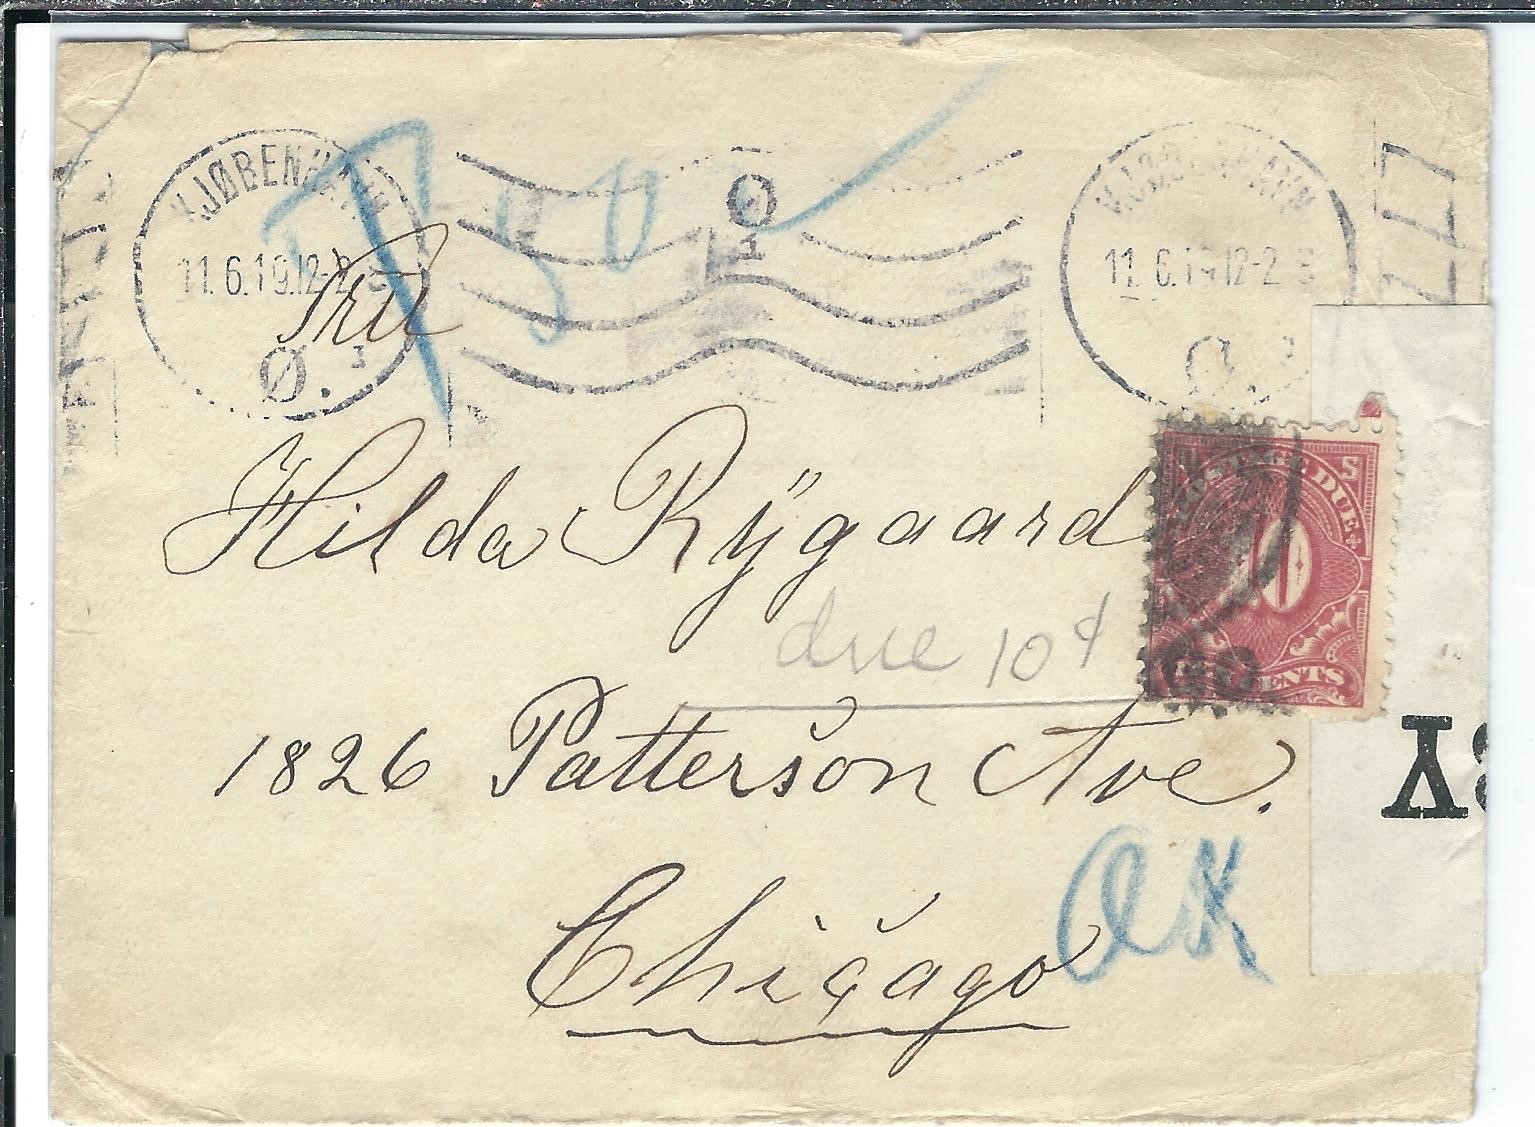 KJØBENHAVN
11.6.19.12-2
Ø. 3
Ø
1
KJØBENHAVN
11.6.19 12-2
Ø.
T 50
Fru
Hilda Rÿgaard
due 10¢
U S
POSTAGE DUE
10
CENTS
1826 Patterson Ave.
Chicago
BY